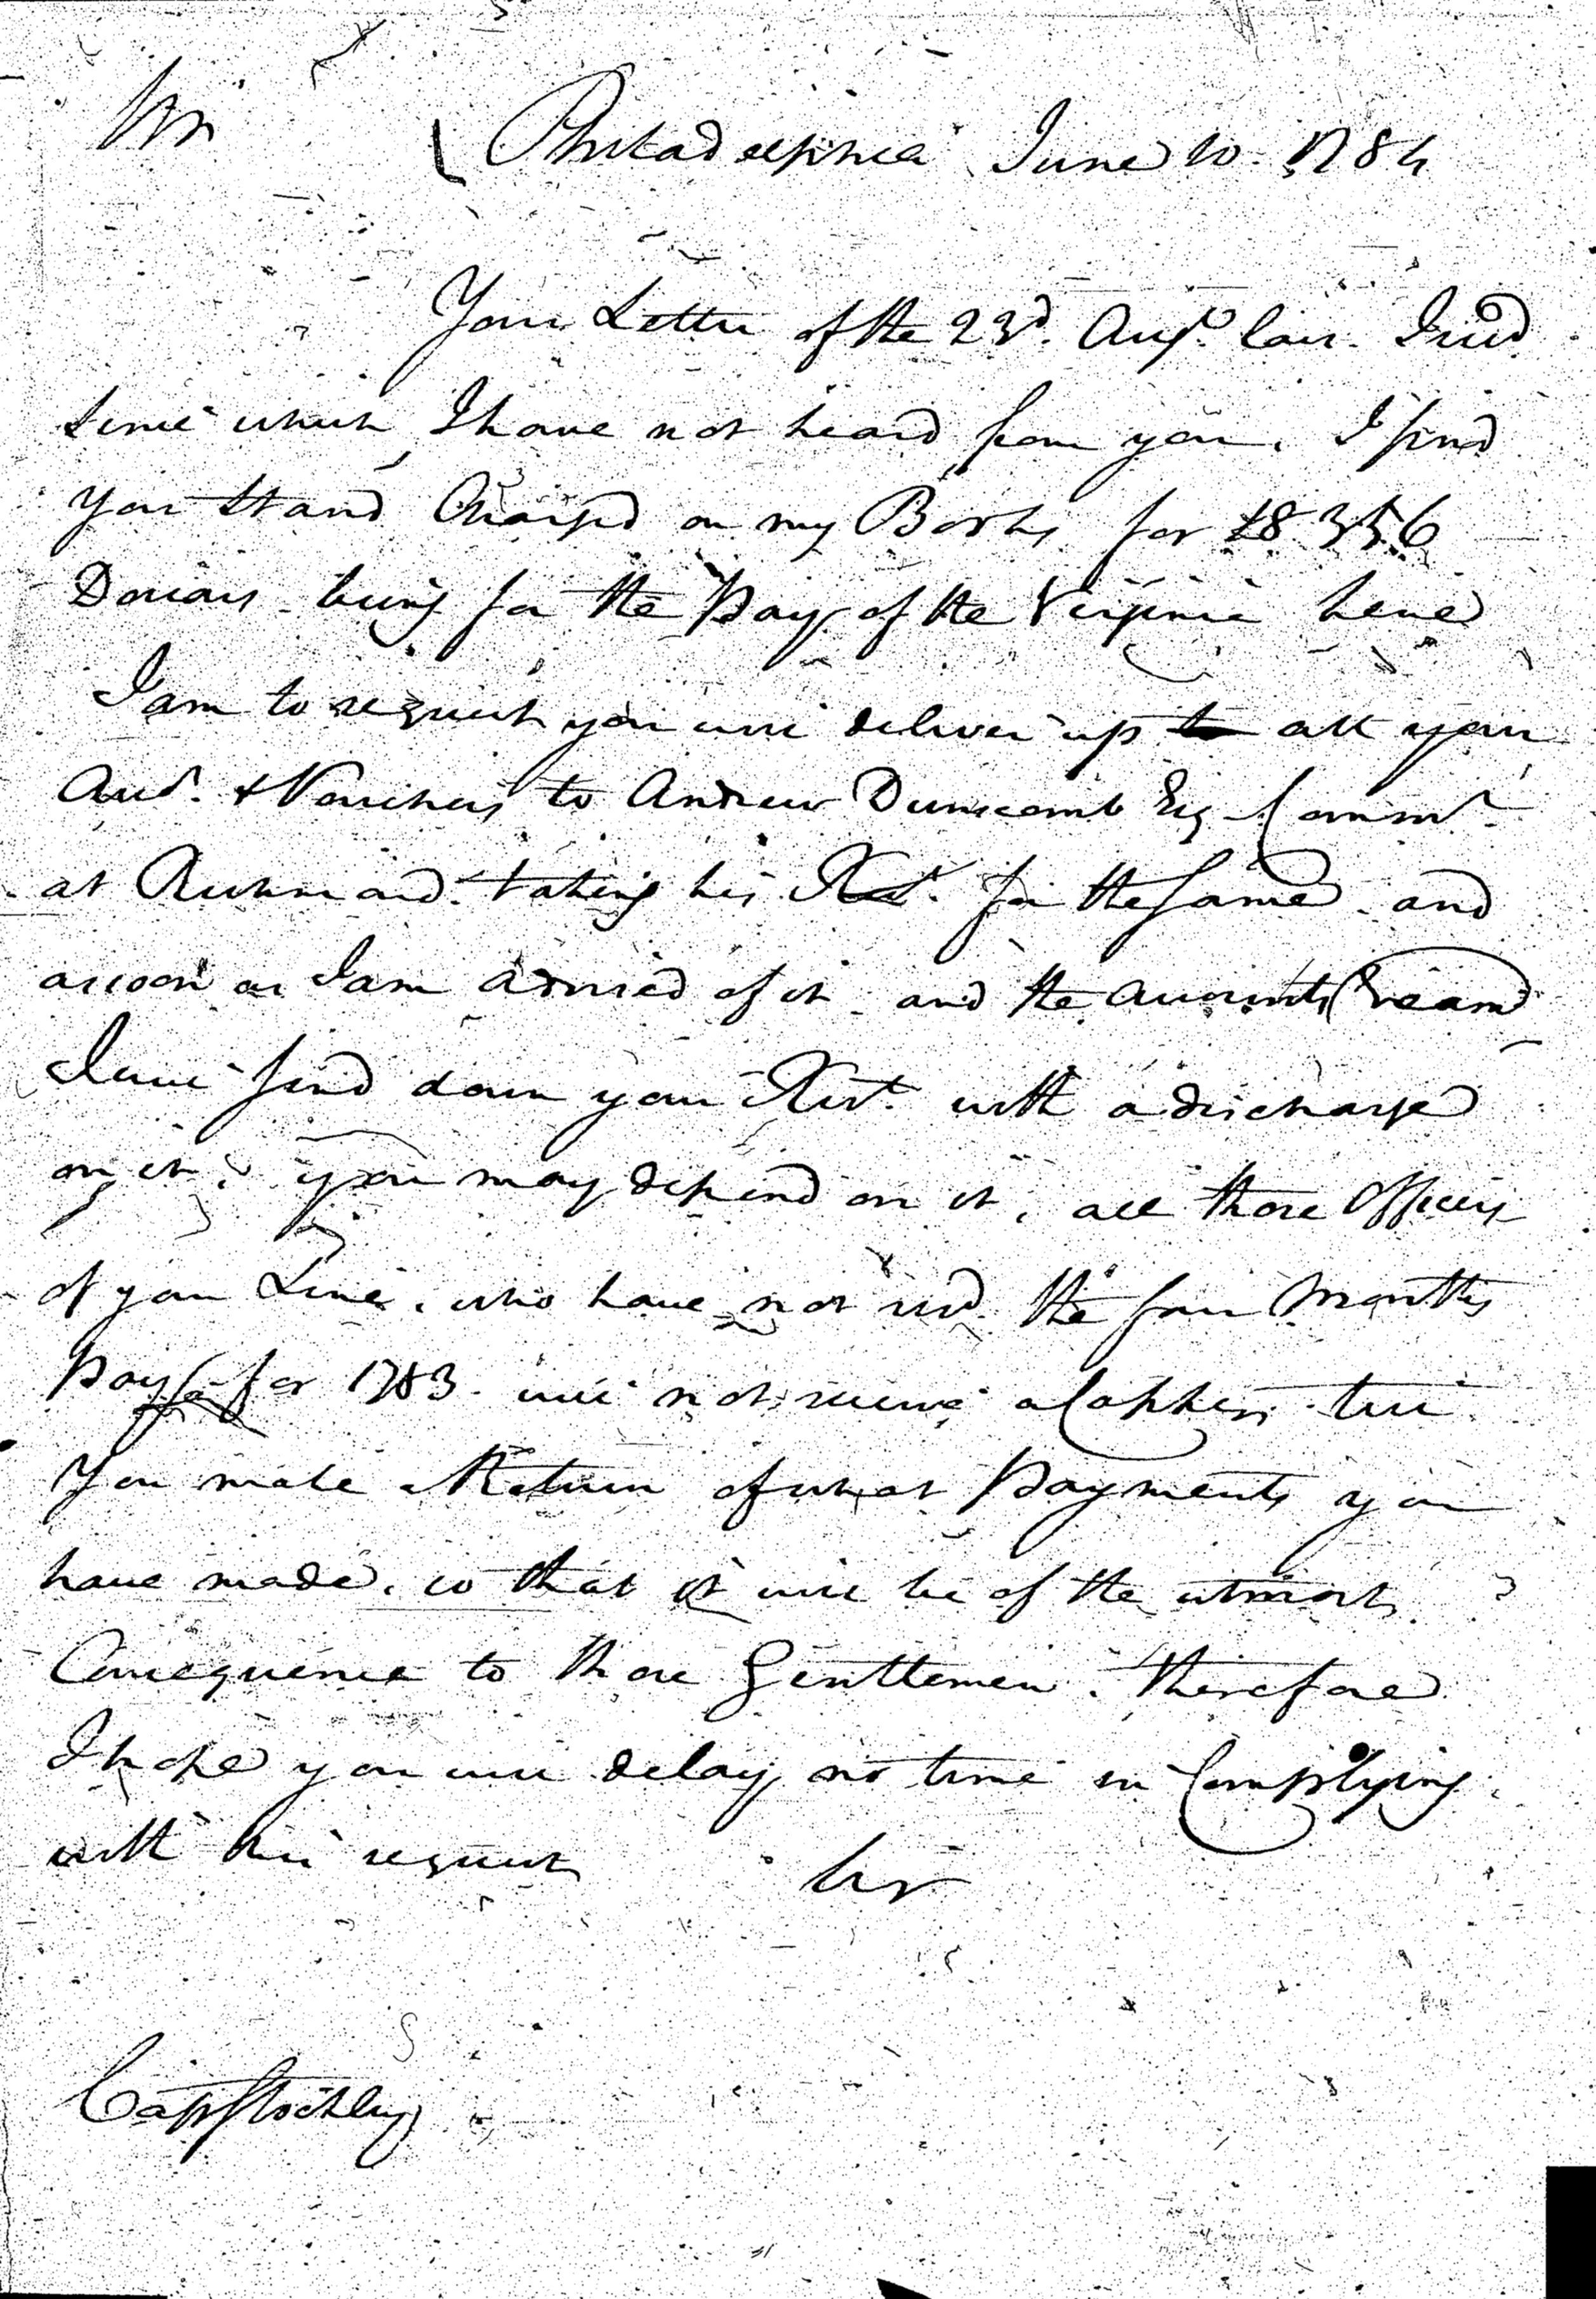 Sir
Philadelphia June 10. 1784
Your Letter of the 23d. Augt. last I recd
since which I have not heard from you. I find
you stand Charged on my Books for 18356
Dollars being for the Pay of the Virginia Line
I am to request you will deliver up to all your
Accts. & Vouchers to Andrew Dunscomb Esq Commr.
at Richmond taking his Rect. for the same and
as soon as I am advised of it and the accounts Exam'd
I will send down your Rect. with a discharge
on it. you may depend on it, all those Officers
of your Line, who have not recd the four Months
Pay for 1783 will not receive a Copper till
You make a Return of what Payments you
have made, so that it will be of the utmost
Consequence to those Gentlemen. therefore
I hope you will delay no time in Complying
with this request
Sir
Capt Stockley